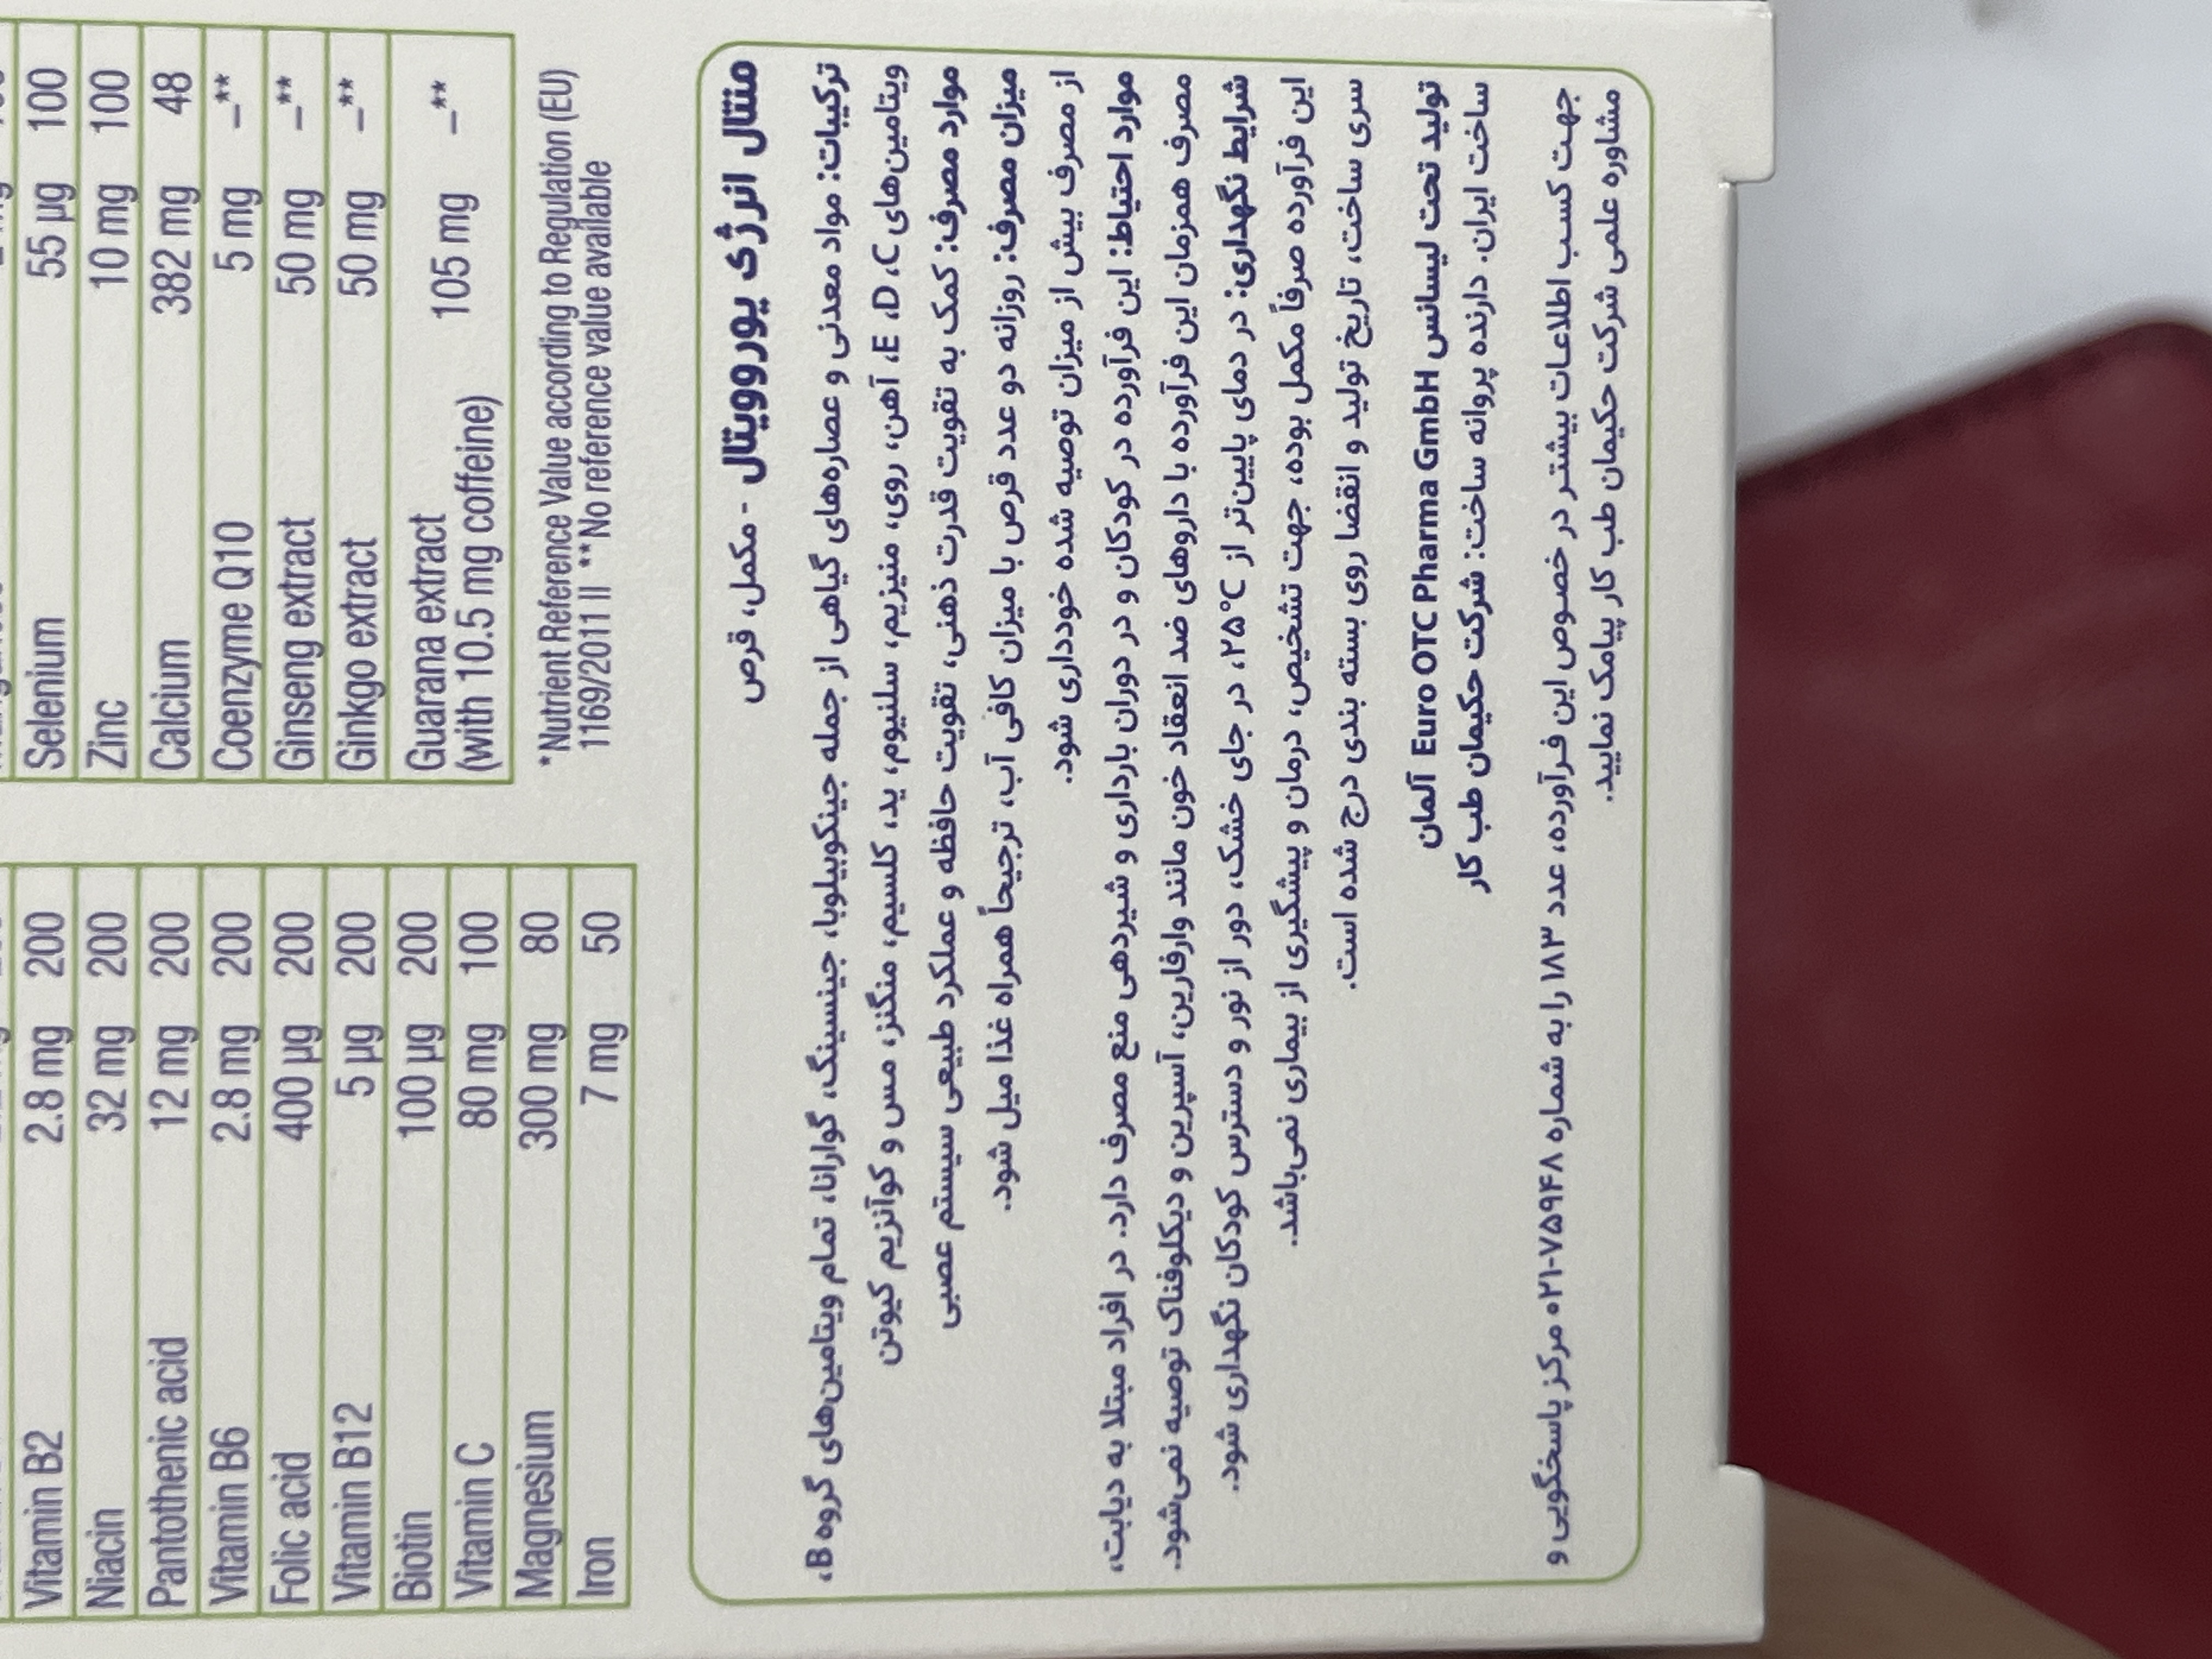 Vitamin B2 2.8 mg 200
Niacin 32 mg 200
Pantothenic acid 12 mg 200
Vitamin B6 2.8 mg 200
Folic acid 400 µg 200
Vitamin B12 5 µg 200
Biotin 100 µg 200
Vitamin C 80 mg 100
Magnesium 300 mg 80
Iron 7 mg 50
Selenium 55 µg 100
Zinc 10 mg 100
Calcium 382 mg 48
Coenzyme Q10 5 mg –**
Ginseng extract 50 mg –**
Ginkgo extract 50 mg –**
Guarana extract
(with 10.5 mg coffeine) 105 mg –**
*Nutrient Reference Value according to Regulation (EU)
1169/2011 II **No reference value available
منتال انرژی یوروویتال - مکمل، قرص
ترکیبات: مواد معدنی و عصاره‌های گیاهی از جمله جینکوبیلوبا، جینسینگ، گوارانا، تمام ویتامین‌های گروه B،
ویتامین‌های E ،D ،C، آهن، روی، منیزیم، سلنیوم، ید، کلسیم، منگنز، مس و کوآنزیم کیوتن
موارد مصرف: کمک به تقویت قدرت ذهنی، تقویت حافظه و عملکرد طبیعی سیستم عصبی
میزان مصرف: روزانه دو عدد قرص با میزان کافی آب، ترجیحاً همراه غذا میل شود.
از مصرف بیش از میزان توصیه شده خودداری شود.
موارد احتیاط: این فرآورده در کودکان و در دوران بارداری و شیردهی منع مصرف دارد. در افراد مبتلا به دیابت،
مصرف همزمان این فرآورده با داروهای ضد انعقاد خون مانند وارفارین، آسپرین و دیکلوفناک توصیه نمی‌شود.
شرایط نگهداری: در دمای پایین‌تر از ۲۵°C، در جای خشک، دور از نور و دسترس کودکان نگهداری شود.
این فرآورده صرفاً مکمل بوده، جهت تشخیص، درمان و پیشگیری از بیماری نمی‌باشد.
سری ساخت، تاریخ تولید و انقضا روی بسته بندی درج شده است.
تولید تحت لیسانس Euro OTC Pharma GmbH آلمان
ساخت ایران. دارنده پروانه ساخت: شرکت حکیمان طب کار
جهت کسب اطلاعات بیشتر در خصوص این فرآورده، عدد ۱۸۳ را به شماره ۷۵۹۴۸-۰۲۱ مرکز پاسخگویی و
مشاوره علمی شرکت حکیمان طب کار پیامک نمایید.